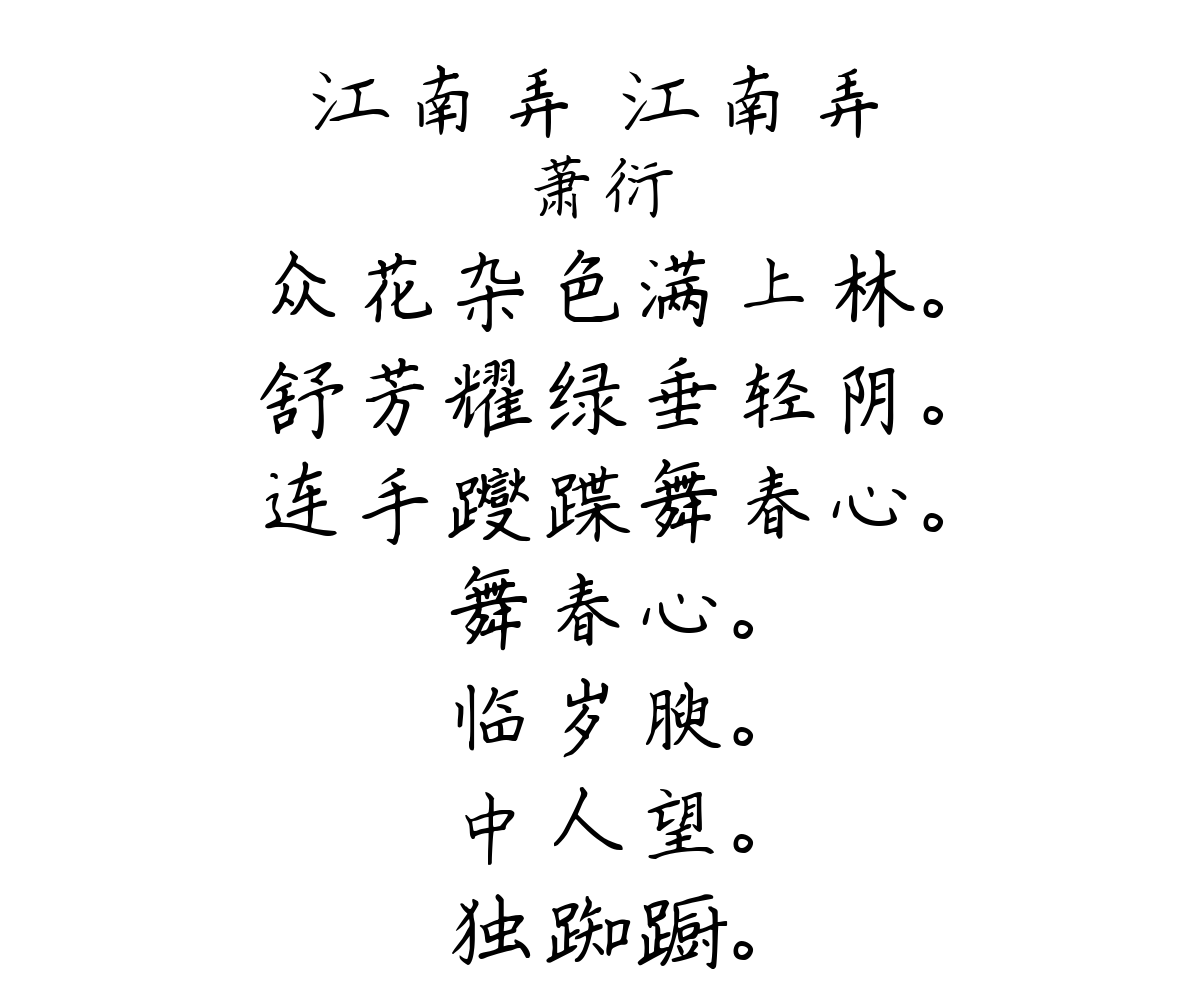 江南弄 江南弄
萧衍
众花杂色满上林。
舒芳耀绿垂轻阴。
连手躞蹀舞春心。
舞春心。
临岁腴。
中人望。
独踟蹰。